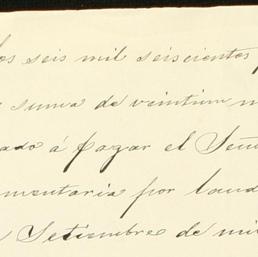 los seis mil seiscientos
suma de veintiun m
ado á pagar el Seño
mentaria por
Setiembre de mil